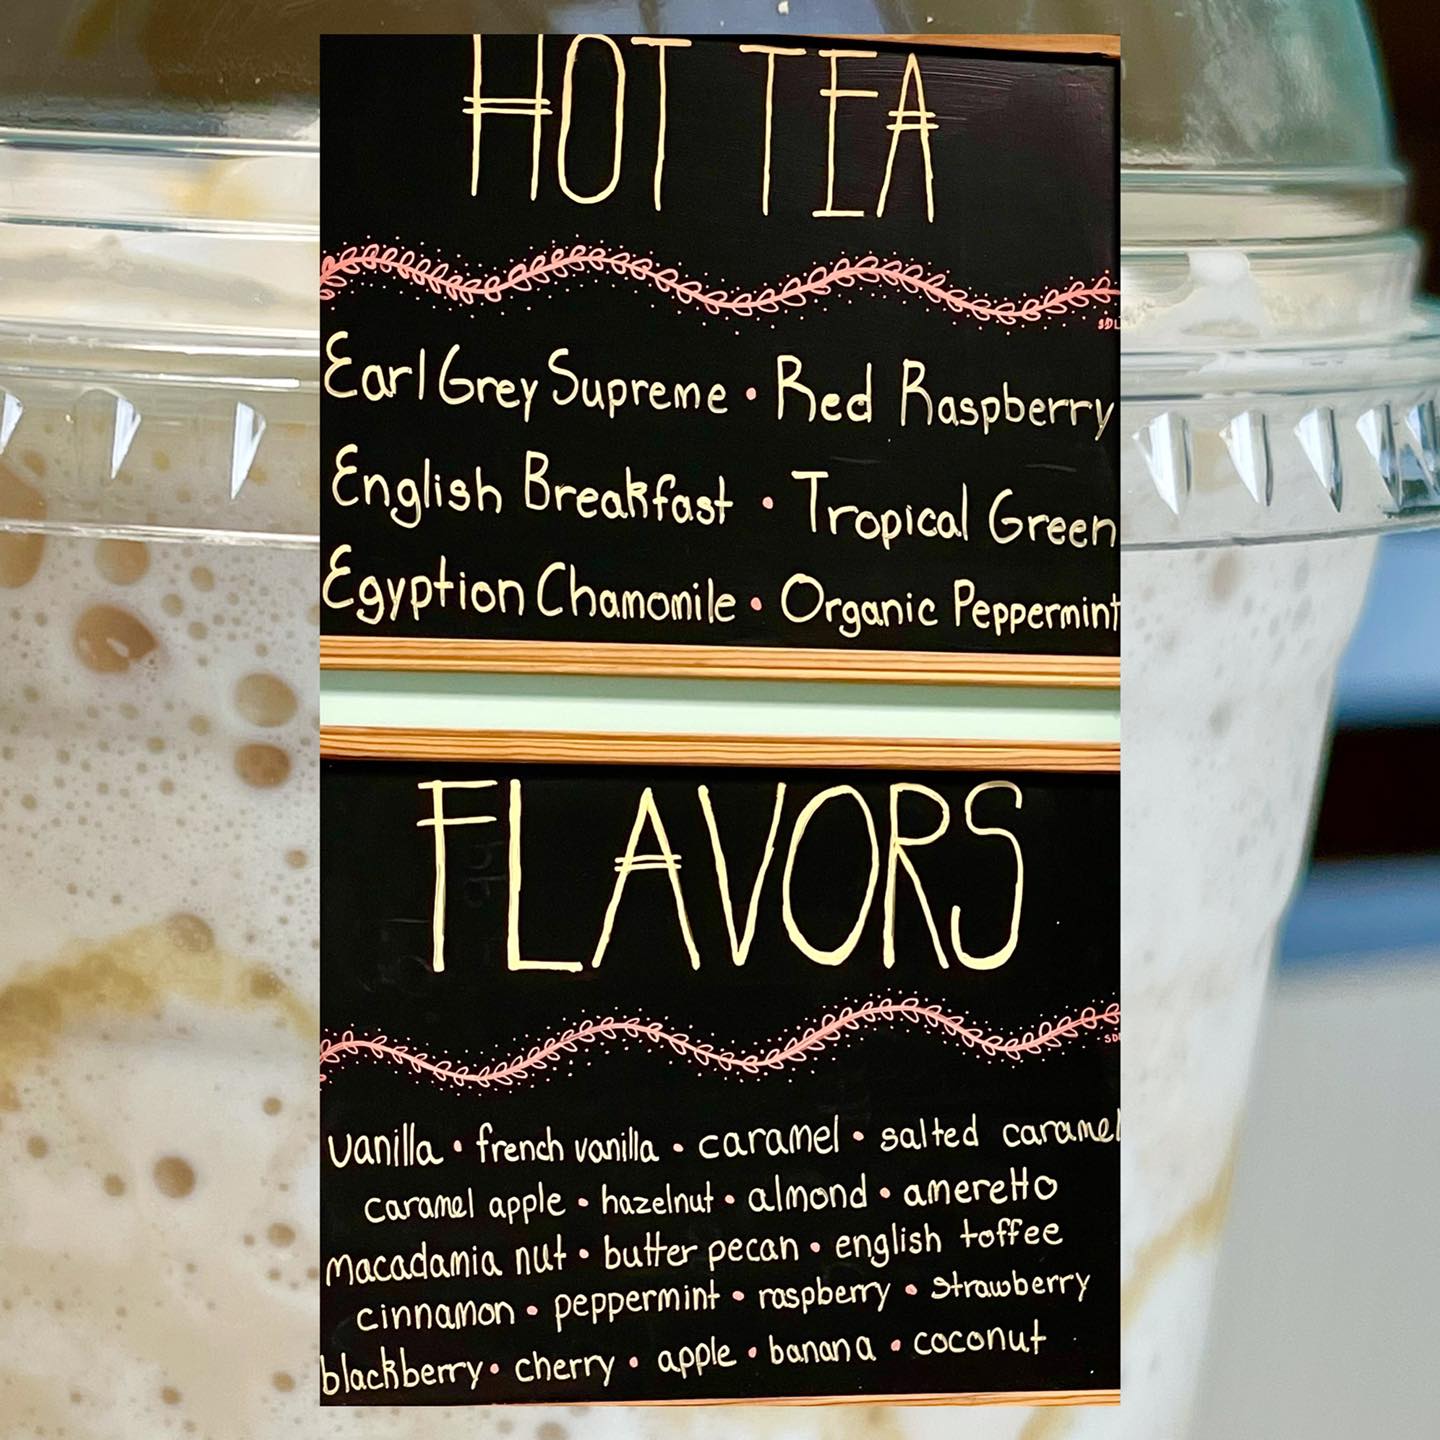 HOT TEA
SDL
Earl Grey Supreme • Red Raspberry
English Breakfast • Tropical Green
Egyption Chamomile • Organic Peppermint
FLAVORS
vanilla • french vanilla • caramel • salted caramel
caramel apple • hazelnut • almond • ameretto
macadamia nut • butter pecan • english toffee
cinnamon • peppermint • raspberry • strawberry
blackberry • cherry • apple • banana • coconut